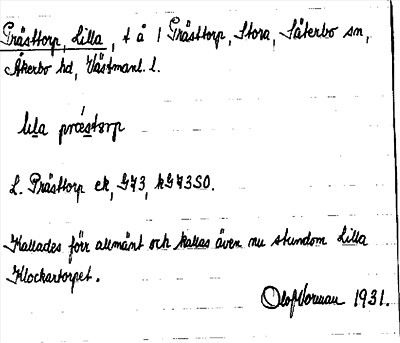 Prästtorp, Lilla, t å 1 Prästtorp, Stora, Säterbo sn,
Åkerbo hd, Västmanl. l.
lila præstɔrp
L. Prästtorp ek, G73, kG73SO.
Kallades förr allmänt och kallas även nu stundom Lilla
Klockartorpet.
Olof Norman 1931.